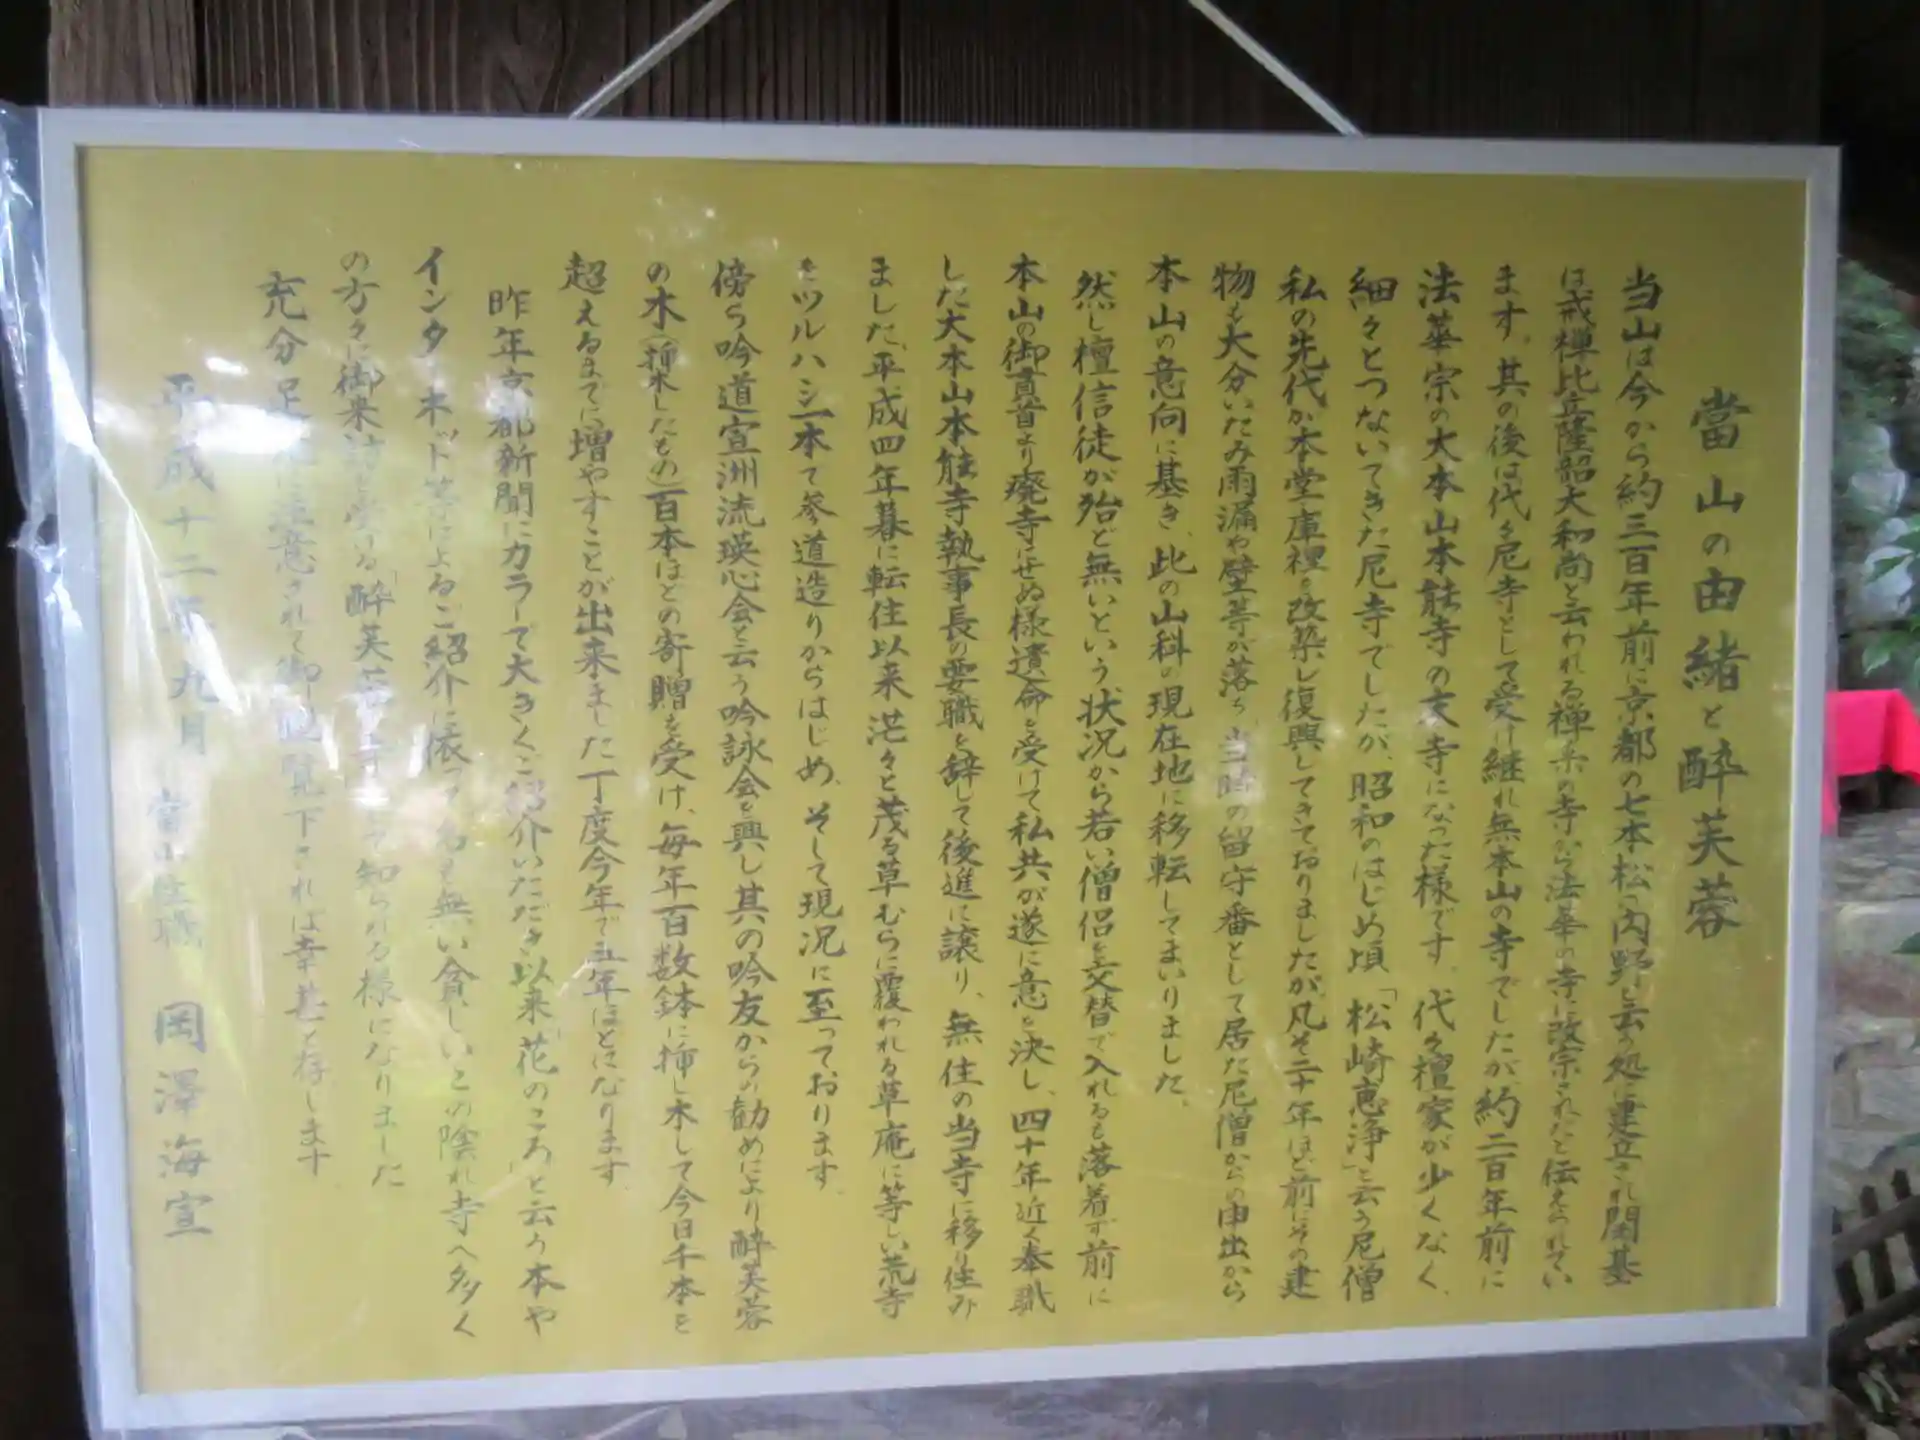 當山の由緒と酔芙蓉
当山は今から約三百年前に京都の七本松の内野と云う処に建立され開基
は戒禅比丘隆韶大和尚と云われる禅系の寺から法華の寺に改宗されたと伝えられてい
ます。其の後は代々尼寺として受け継れ無本山の寺でしたが、約二百年前に
法華宗の大本山本能寺の支寺になった様です。代々檀家が少くなく、
細々とつないできた尼寺でしたが、昭和のはじめ頃「松崎恵浄」と云う尼僧
私の先代が本堂庫裡を改築し復興してきておりましたが、凡そ二十年ほど前にその建
物も大分いたみ雨漏や壁等が落ち、当時の留守番として居た尼僧からの申出から
本山の意向に基き、此の山科の現在地に移転してまいりました。
然し檀信徒が殆ど無いという状況から若い僧侶を交替で入れるも落着ず前に
本山の御貫首より廃寺にせぬ様遺命を受けて私共が遂に意を決し、四十年近く奉職
した大本山本能寺執事長の要職を辞して後進に譲り、無住の当寺に移り住み
ました。平成四年暮に転住以来茫々と茂る草むらに覆われる草庵に等しい荒寺
をツルハシ一本で参道造りからはじめ、そして現況に至っております。
傍ら吟道宣洲流瑛心会と云う吟詠会を興し其の吟友からの勧めにより酔芙蓉
の木（挿木したもの）百本ほどの寄贈を受け、毎年百数鉢に挿し木して今日千本を
超えるまでに増やすことが出来ました丁度今年で五年ほどになります。
昨年京都新聞にカラーで大きくご紹介いただき以来「花のころ」と云う本や
インターネット等によるご紹介に依って名も無い貧しいこの陰れ寺へ多く
の方々に御来訪を受ける「酔芙蓉 知られる様になりました
充分足元に注意されて御観覧下されば幸甚と存します。
平成十二年九月 當山住職 岡澤海宣